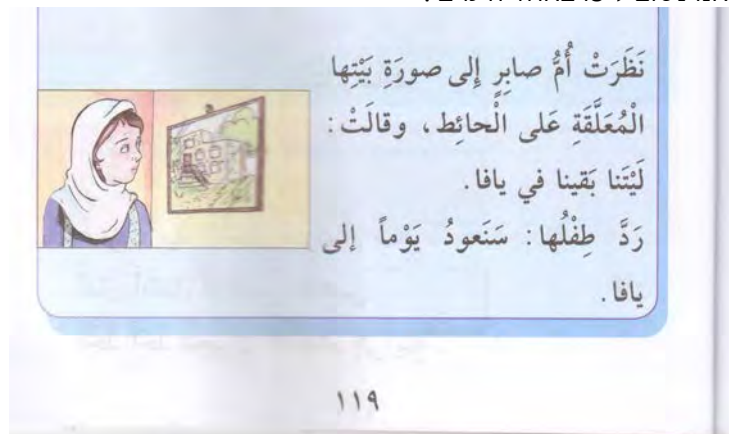 نَظَرَتْ أُمُّ صابِرٍ إِلى صورَةِ بَيْتِها
الْمُعَلَّقَةِ عَلى الْحائِط، وقالَتْ:
لَيْتَنا بَقينا في يافا.
رَدَّ طِفْلُها: سَنَعودُ يَوْماً إلى
يافا.
١١٩